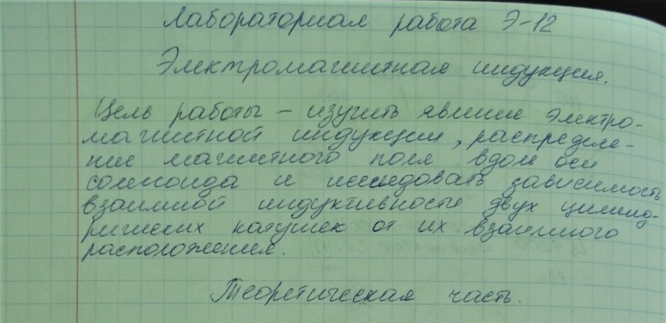 Лабораторная работа Э-12
Электромагнитная индукция.
Цель работы – изучить явление электро-
магнитной индукции, распределе-
ние магнитного поля вдоль оси
соленоида и исследовать зависимость
взаимной индуктивности двух цилинд-
рических катушек от их взаимного
расположения.
Теоретическая часть.